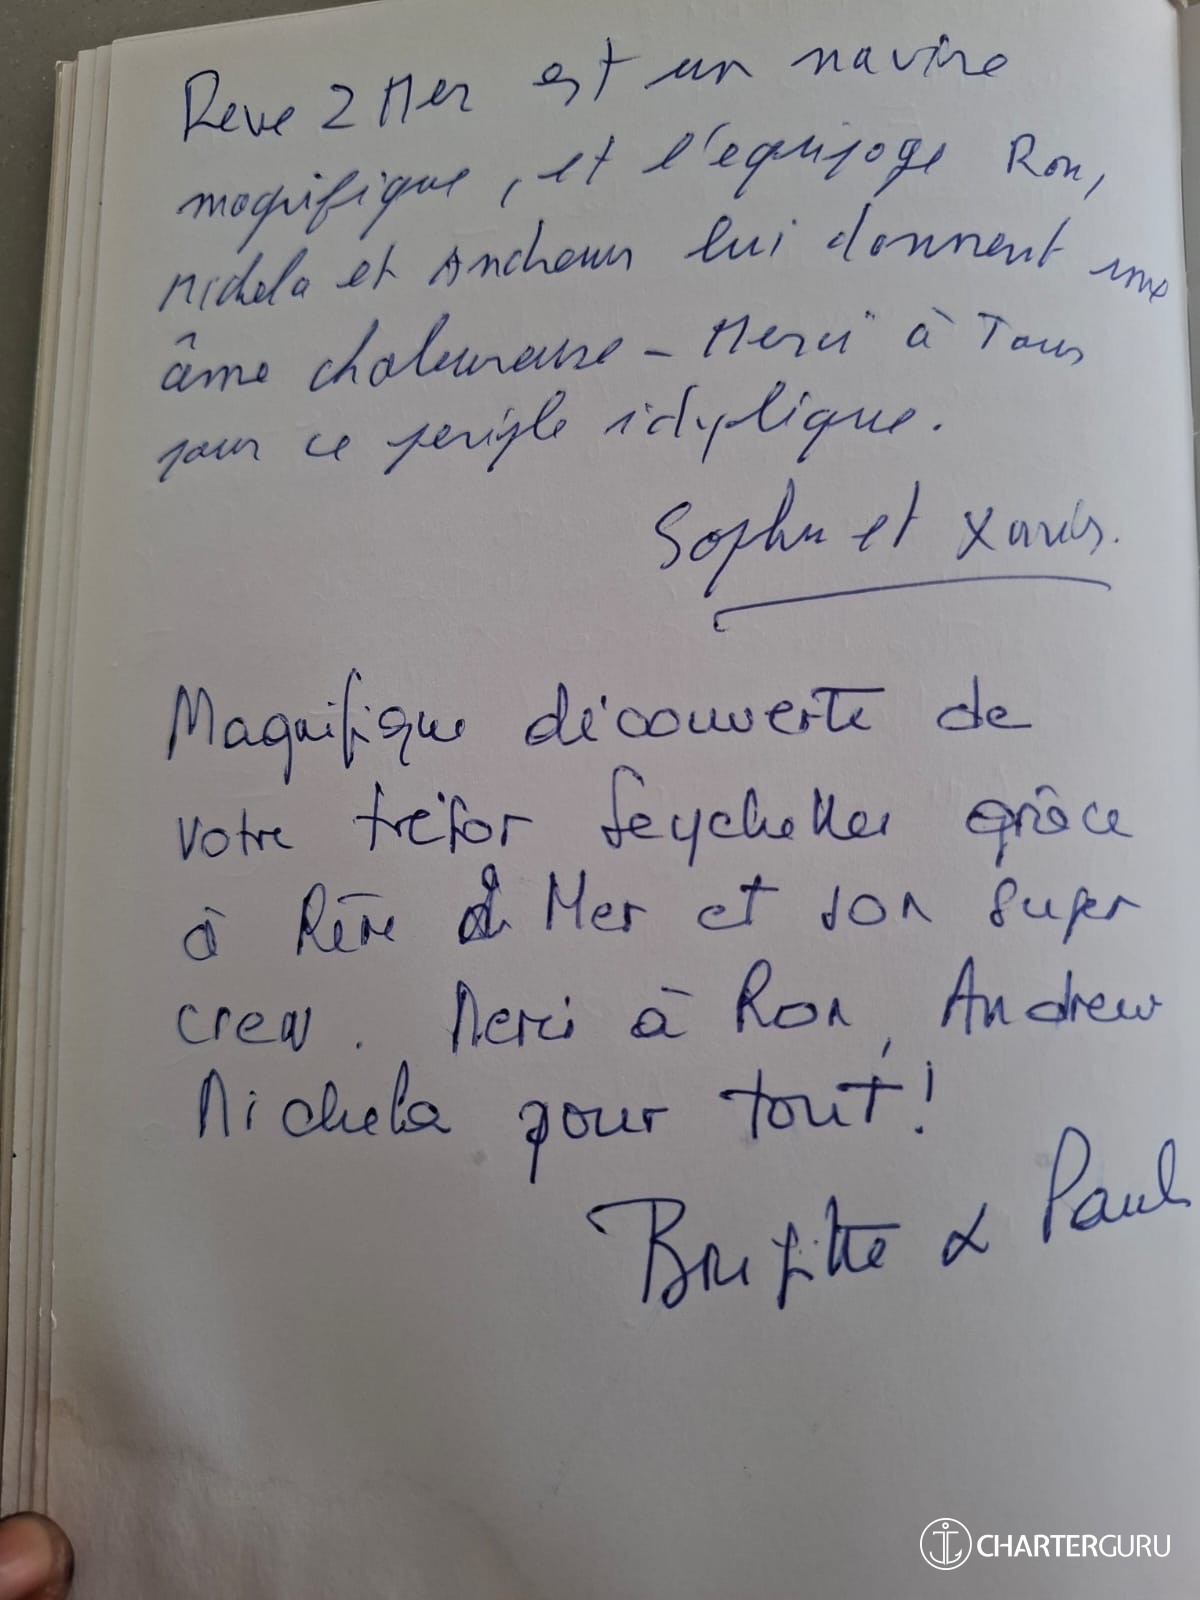 Reve 2 Mer est un navire
magnifique, et l'equipage Ron,
Michela et Andrew lui donnent une
âme chaleureuse - Merci à Tous
pour ce periple idylique.
Sophie et
Magnifique découverte de
votre trésor Seychelles grâce
à Rêve 2 Mer et son super
crew. Merci à Ron, Andrew
Michela pour tout !
Brigitte & Paul
CHARTERGURU